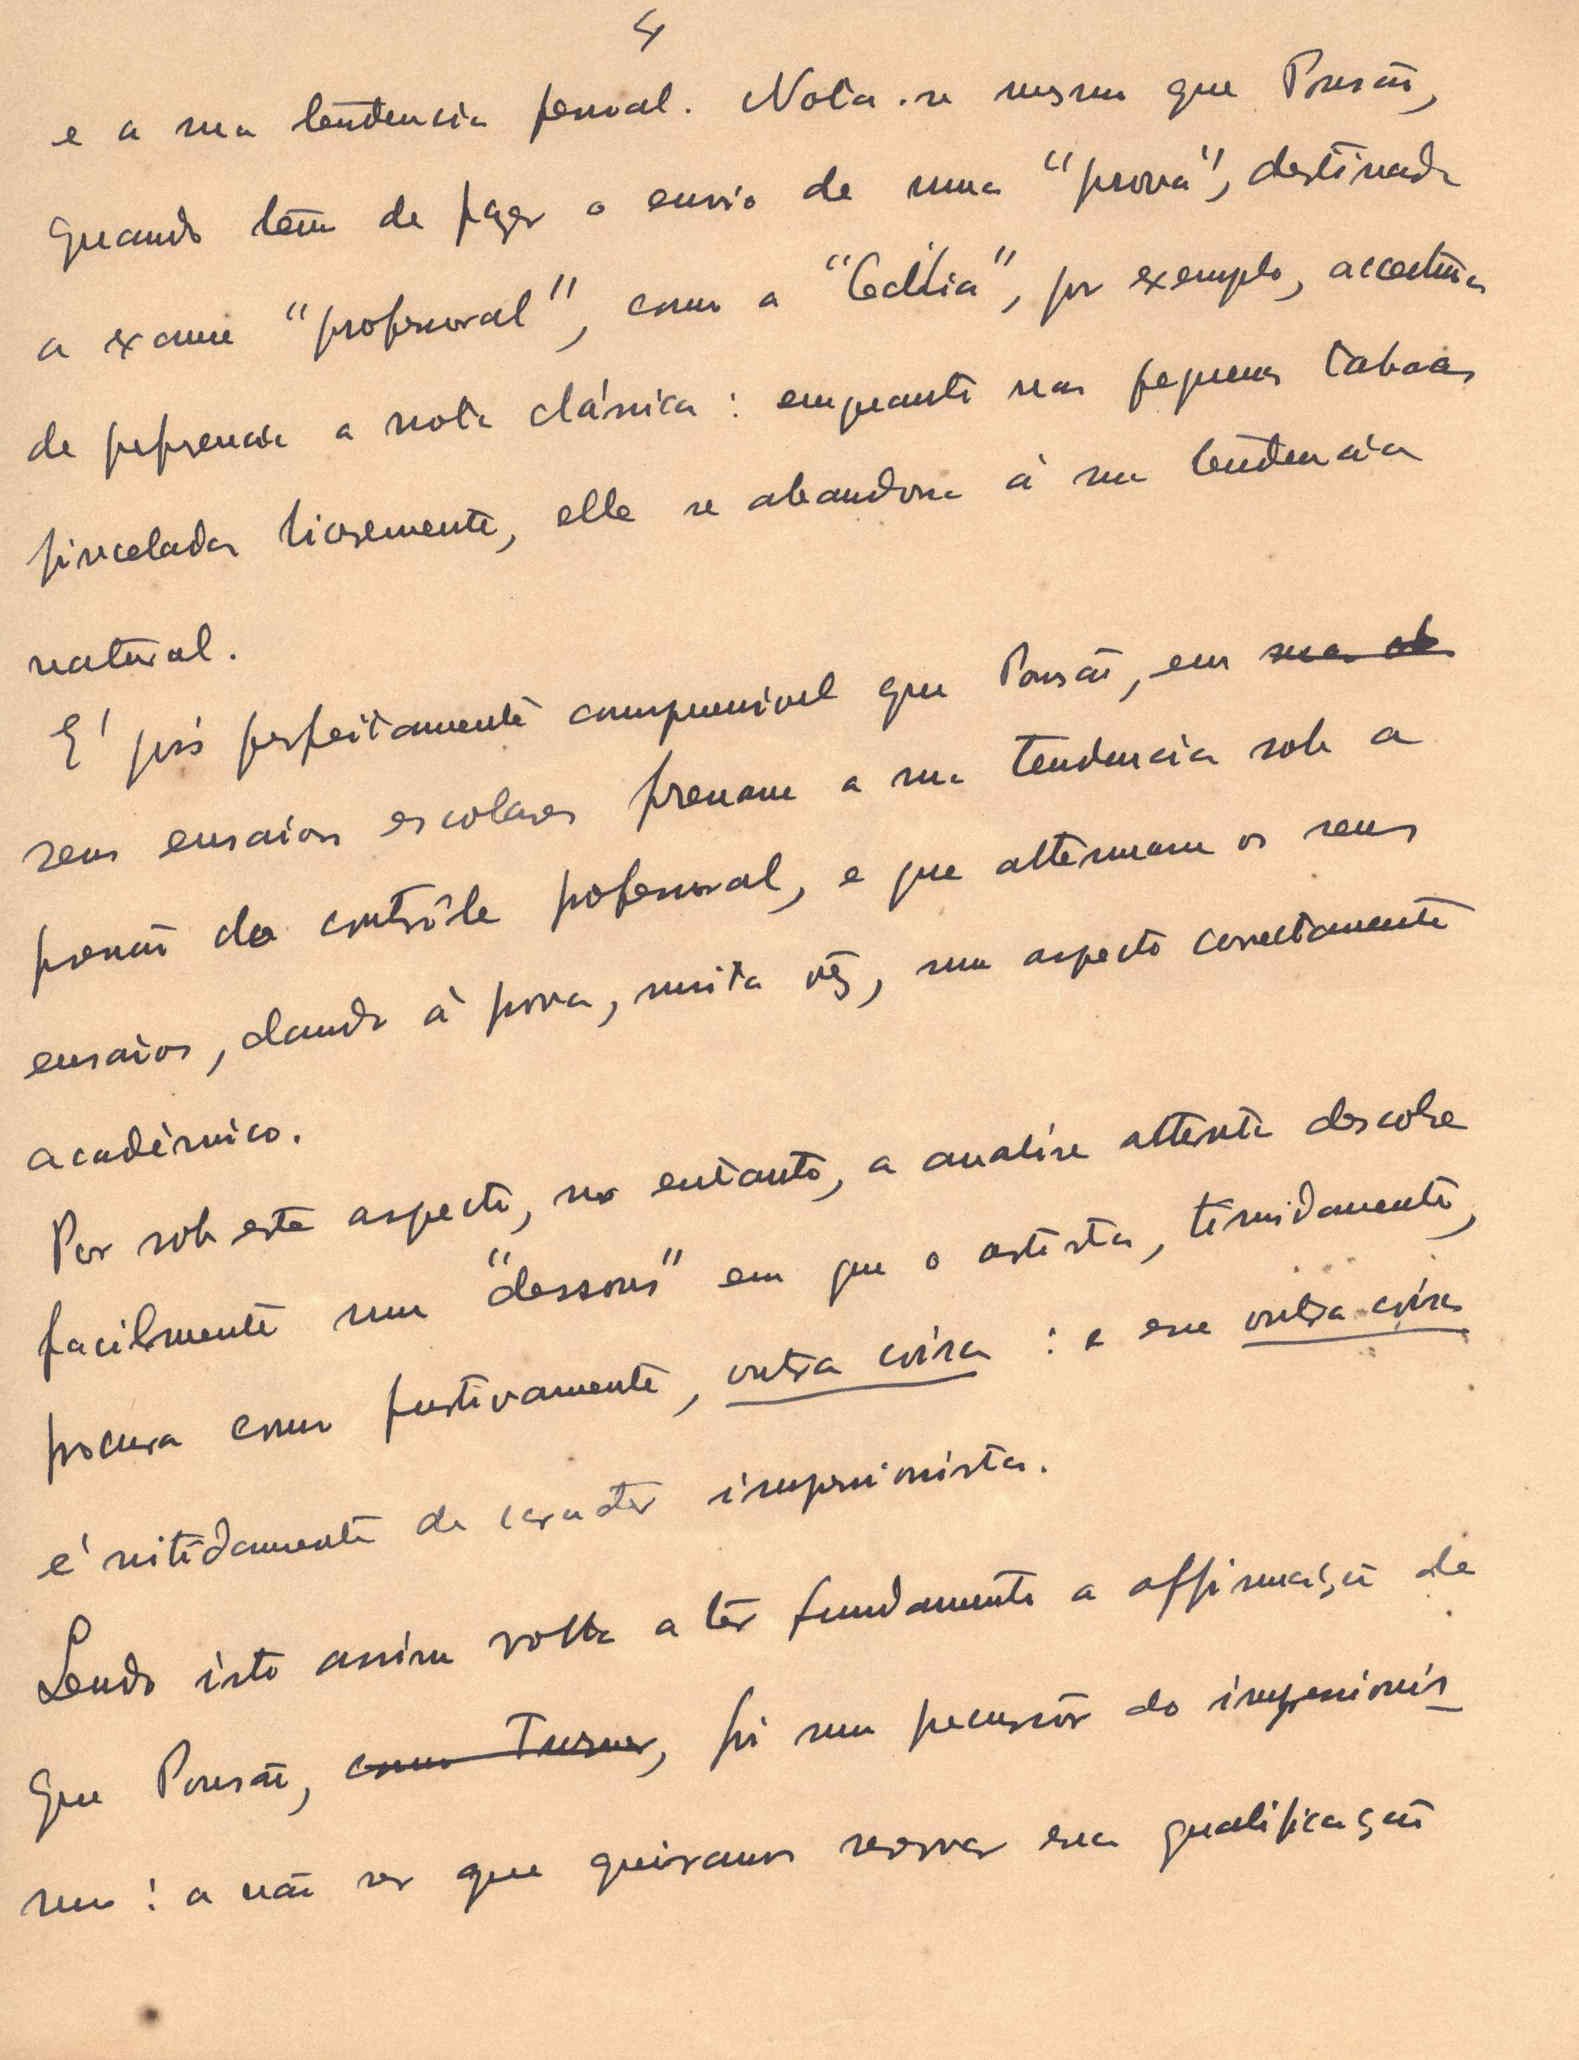 4
e a sua tendencia pessoal. Nota-se mesmo que Pousão,
quando têm de fazer o envio de uma "prova", destinada
a exame "professoral", como a "Cecilia", por exemplo, accentúa
de preferencia a nota clássica: emquanto nas pequenas taboas
pinceladas livremente, elle se abandona á sua tendencia
natural.
E' pois perfeitamente comprensivel que Pousão, em sua ob
seus ensaios escolares frenasse a sua tendencia sob a
pressão do contrôle professoral, e que attenuasse os seus
ensaios, dando á prova, muita vêz, um aspecto correctamente
académico.
Por sob este aspecto, no entanto, a analise attenta descobre
facilmente um "dessous" em que o artista, timidamente,
procura como furtivamente, outra coisa: e esse outra coisa
é nitidamente de caracter impressionista.
Sendo isto assim volta a têr fundamento a affirmação de
que Pousão, como Turner, foi um precursôr do impressionis
mo: a não ser que queiramos reservar essa qualificação